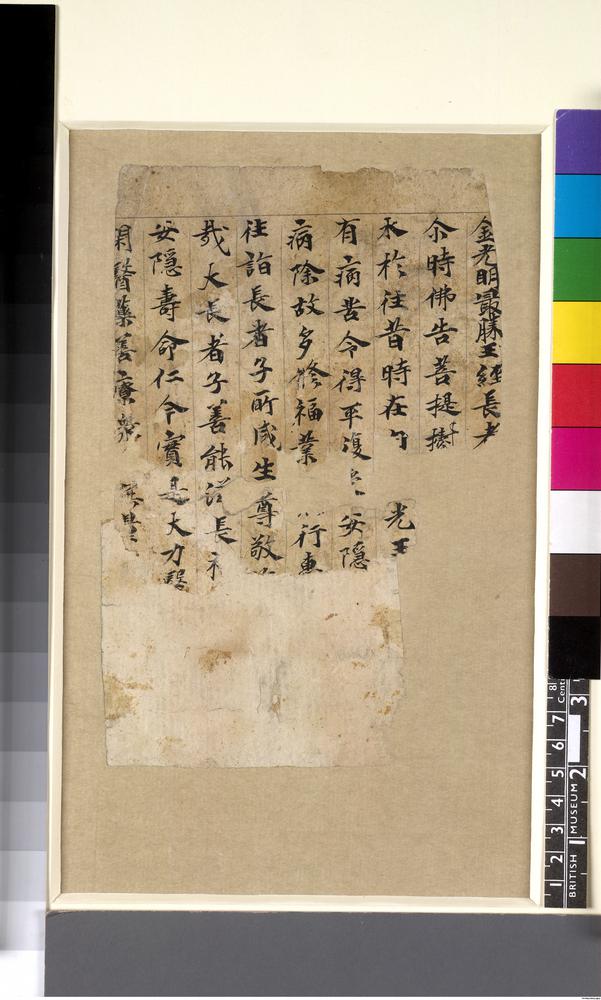 金光明最勝王經長者
尒時佛告菩提樹
水於往昔時在 光王
有病苦令得平復 安隱
病除故多修福業 行惠
往詣長者子所咸生尊敬
哉大長者子善能 長
安隱壽命仁今實是大力醫
閑醫藥善療眾
1 2 3 4 5 6 7 8 Centi
BRITISH MUSEUM 2 3